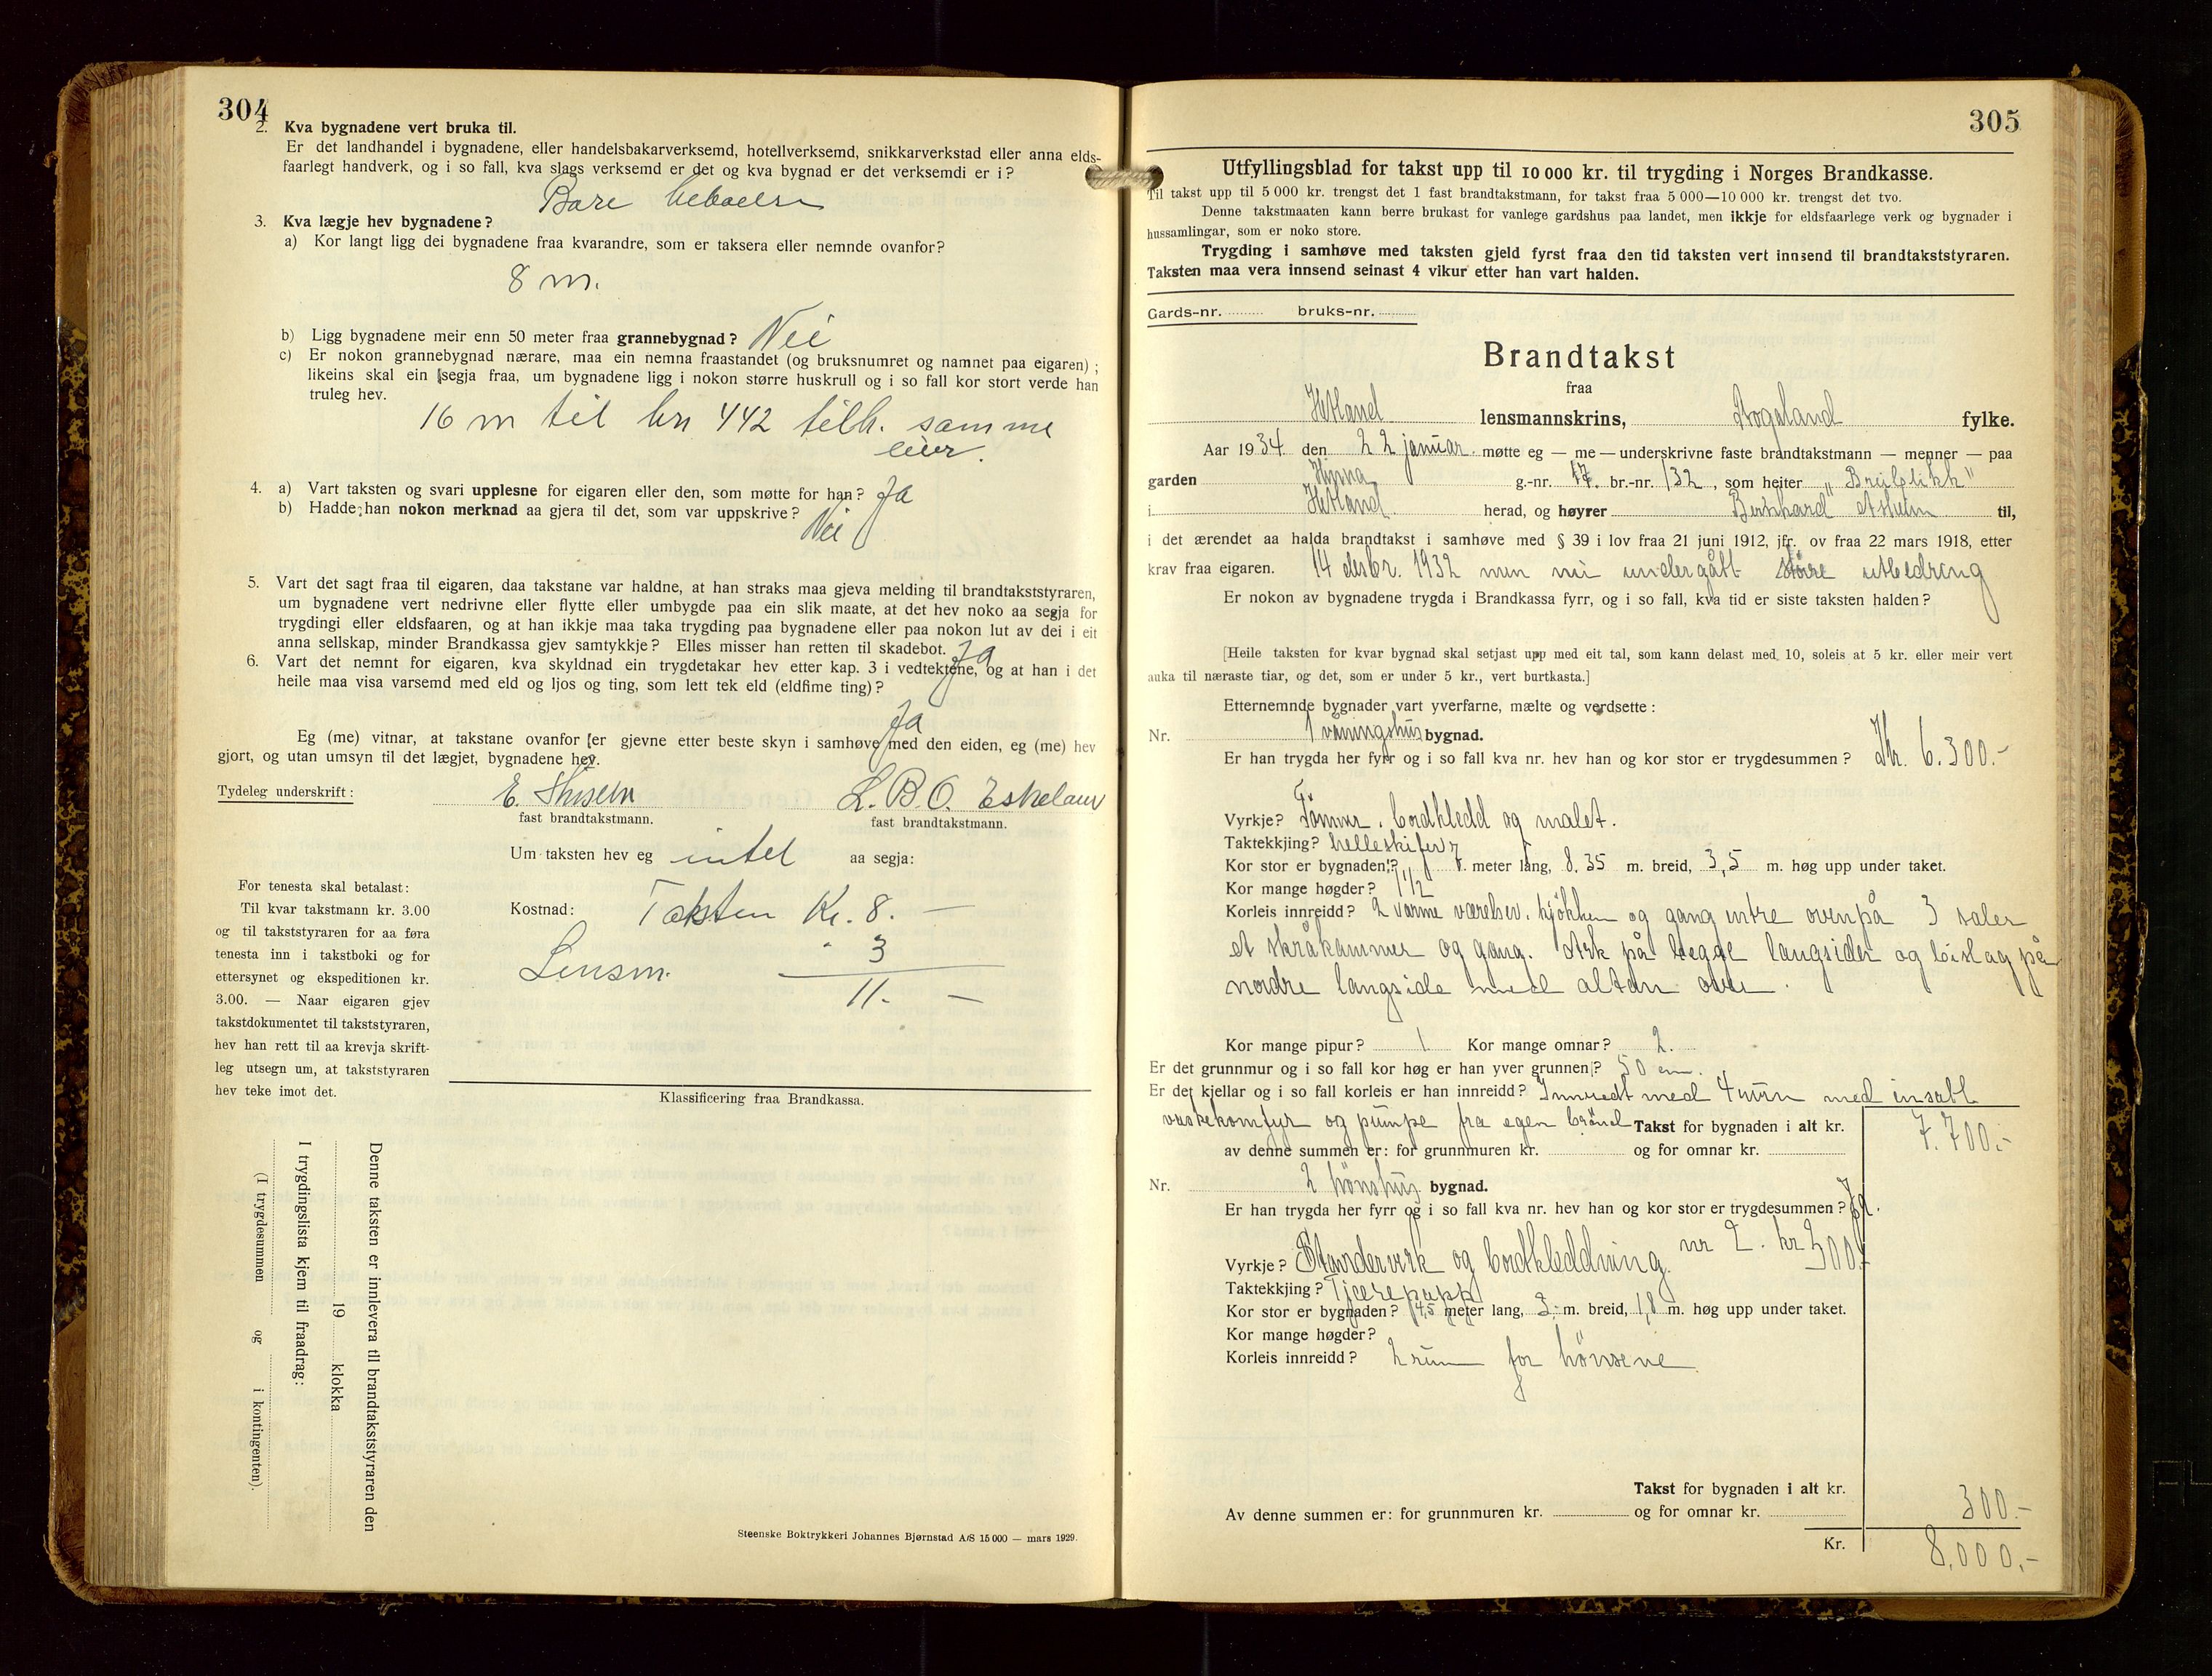 304
2. Kva bygnadene vert bruka til.
Er det landhandel i bygnadene, eller handelsbakarverksemd, hotellverksemd, snikkarverkstad eller anna elds-
faarlegt handverk, og i so fall, kva slags verksemd er det og kva bygnad er det verksemdi er i?
Bare beboelse
3. Kva lægje hev bygnadene?
a) Kor langt ligg dei bygnadene fraa kvarandre, som er taksera eller nemnde ovanfor?
8 m.
b) Ligg bygnadene meir enn 50 meter fraa grannebygnad? Nei
c) Er nokon grannebygnad nærare, maa ein nemna fraastandet (og bruksnumret og namnet paa eigaren);
likeins skal ein segja fraa, um bygnadene ligg i nokon større huskrull og i so fall kor stort verde han
truleg hev.
16 m til brn 442 tilh. samme
eier.
4. a) Vart taksten og svari upplesne for eigaren eller den, som møtte for han? Ja
b) Hadde han nokon merknad aa gjera til det, som var uppskrive? Nei
5. Vart det sagt fraa til eigaren, daa takstane var haldne, at han straks maa gjeva melding til brandtakststyraren,
um bygnadene vert nedrivne eller flytte eller umbygde paa ein slik maate, at det hev noko aa segja for
trygdingi eller eldsfaaren, og at han ikkje maa taka trygding paa bygnadene eller paa nokon lut av dei i eit
anna sellskap, minder Brandkassa gjev samtykkje? Elles misser han retten til skadebot. Ja
6. Vart det nemnt for eigaren, kva skyldnad ein trygdetakar hev etter kap. 3 i vedtektene, og at han i det
heile maa visa varsemd med eld og ljos og ting, som lett tek eld (eldfime ting)?
Ja
Eg (me) vitnar, at takstane ovanfor er gjevne etter beste skyn i samhøve med den eiden, eg (me) hev
gjort, og utan umsyn til det lægjet, bygnadene hev.
Tydeleg underskrift: L. B. O. Eskeland
fast brandtakstmann. fast brandtakstmann.
Um taksten hev eg intet aa segja:
For tenesta skal betalast:
Til kvar takstmann kr. 3.00
og til takststyraren for aa føra
tenesta inn i takstboki og for
ettersynet og ekspeditionen kr.
3.00. — Naar eigaren gjev
takstdokumentet til takststyraren,
hev han rett til aa krevja skrift-
leg utsegn um, at takststyraren
hev teke imot det.
Kostnad: Taksten Kr. 8. —
Lensm. " 3
11. —
Klassificering fraa Brandkassa.
Denne taksten er innlevera til brandtakststyraren den
19 klokka
I trygdingslista kjem til fraadrag:
(I trygdesummen og i kontingenten).
Steenske Boktrykkeri Johannes Bjørnstad A/S 15 000 — mars 1929.
305
Utfyllingsblad for takst upp til 10 000 kr. til trygding i Norges Brandkasse.
Til takst upp til 5 000 kr. trengst det 1 fast brandtakstmann, for takst fraa 5 000—10 000 kr. trengst det tvo.
Denne takstmaaten kann berre brukast for vanlege gardshus paa landet, men ikkje for eldsfaarlege verk og bygnader i
hussamlingar, som er noko store.
Trygding i samhøve med taksten gjeld fyrst fraa den tid taksten vert innsend til brandtakststyraren.
Taksten maa vera innsend seinast 4 vikur etter han vart halden.
Gards-nr. bruks-nr.
Brandtakst
fraa
Hetland lensmannskrins, Rogaland fylke.
Aar 1934 den 22 januar. møtte eg — me — underskrivne faste brandtakstmann — menner — paa
garden Hinna g.-nr. 17. br.-nr. 132, som heiter "Breiblikk"
i Hetland herad, og høyrer Bernhard Asheim til,
i det ærendet aa halda brandtakst i samhøve med § 39 i lov fraa 21 juni 1912, jfr. ov fraa 22 mars 1918, etter
krav fraa eigaren. 14 desbr. 1932 men nu undergått større utbedring
Er nokon av bygnadene trygda i Brandkassa fyrr, og i so fall, kva tid er siste taksten halden?
[Heile taksten for kvar bygnad skal setjast upp med eit tal, som kann delast med 10, soleis at 5 kr. eller meir vert
auka til næraste tiar, og det, som er under 5 kr., vert burtkasta.]
Etternemnde bygnader vart yverfarne, mælte og verdsette:
Nr. 1 våningshus bygnad.
Er han trygda her fyrr og i so fall kva nr. hev han og kor stor er trygdesummen? Kr. 6.300.-
Vyrkje? Tømmer. bordkledd og malet.
Taktekkjing? helleskifer
Kor stor er bygnaden? 7. meter lang, 8.35 m. breid, 3,5 m. høg upp under taket.
Kor mange høgder? 1 1/2
Korleis innreidd? 2 varme værelser. kjøkken og gang nedre ovenpå 3 saler
et skråkammer og gang. Ark på begge langsider og bislag på
nordre langside med altan over.
Kor mange pipur? 1. Kor mange omnar? 2.
Er det grunnmur og i so fall kor høg er han yver grunnen? 50 cm.
Er det kjellar og i so fall korleis er han innreidd? Innredt med 4 rum med insatt
vaskekomfyr og pumpe fra egen brønd Takst for bygnaden i alt kr. 7.700.-
av denne summen er: for grunnmuren kr. og for omnar kr.
Nr. 2 hønshus bygnad.
Er han trygda her fyrr og i so fall kva nr. hev han og kor stor er trygdesummen? Ja.
nr 2. kr 300.-
Vyrkje? Standerverk og bordkleddning.
Taktekkjing? Tjærepapp
Kor stor er bygnaden? 14,5 meter lang, 3. m. breid, 1,8 m. høg upp under taket.
Kor mange høgder?
Korleis innreidd? 2 rum for hønsene
Takst for bygnaden i alt kr. 300.-
Av denne summen er: for grunnmuren kr. og for omnar kr.
Kr. 8.000.-